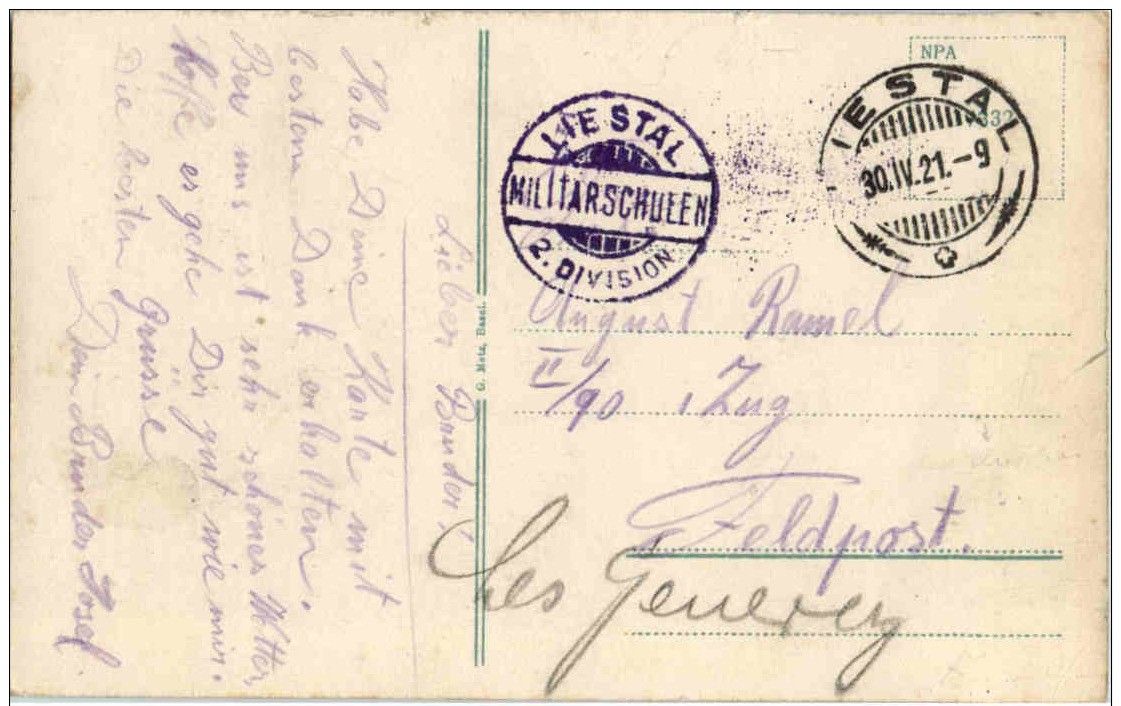 Lieber Bruder!
Habe Deine Karte mit
bestem Dank erhalten.
Bei uns ist sehr schönes Wetter,
Hoffe es gehe Dir gut wie mir.
Die besten Grüsse
Dein Bruder Josef.
G. Metz, Basel.
LIESTAL
MILITÄRSCHULEN
2. DIVISION
NPA
LIESTAL
30.IV.21.-9
August Ramel
II/90 1 Zug
Feldpost.
Les Genevez